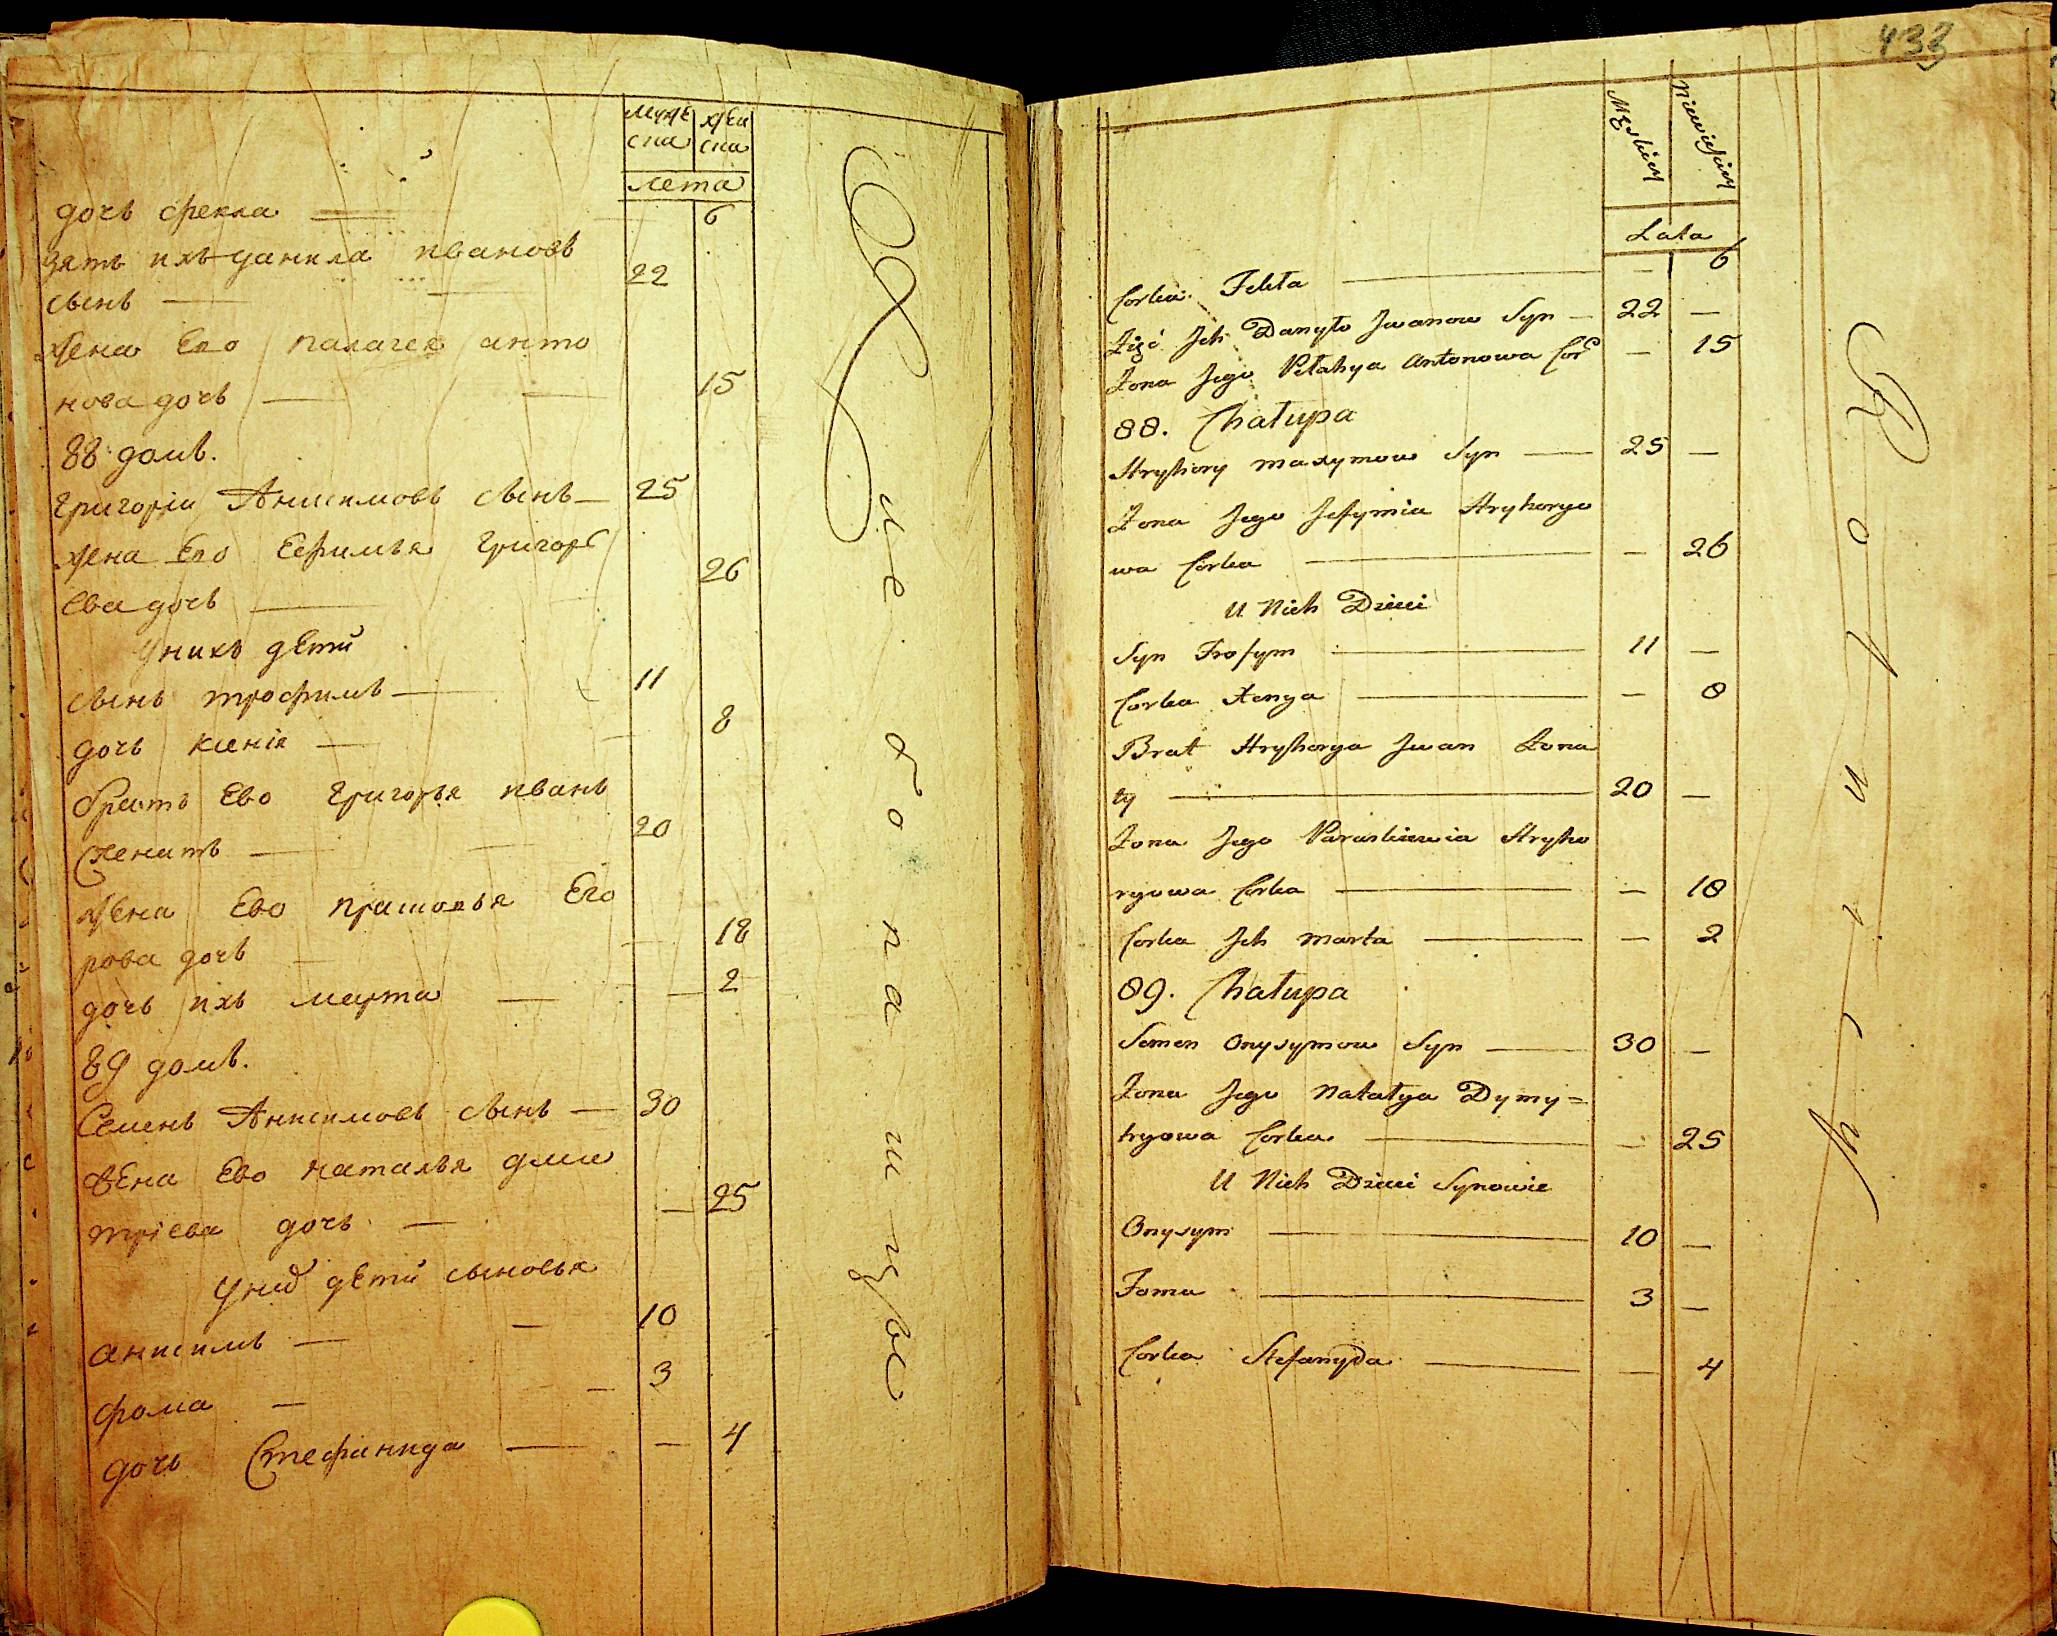 муже
ска
жен
ска
лета
дочь фекла — 6
зять ихъ данила ивановъ
сынъ — 22
жена Ево палагея анто
нова дочь — 15
88 домъ.
григорiи Анисимовъ сынъ — 25
жена Ево Ефимья григорь
ева дочь — 26
у нихъ дети
сынъ трофимъ — 11
дочь ксенiя — 8
братъ Ево григорья иванъ
женатъ — 20
жена Ево прасковья Его
рова дочь — 18
дочь ихъ марта — 2
89 домъ.
Семенъ Анисимовъ сынъ — 30
жена Ево наталья дми
трiева дочь — 25
у них дети сыновья
анисимъ — 10
фома — 3
дочь Стефанида — 4
433
Męskiey
Niewieściey
Lata
Corka Fekła — 6
Zięć Jch Danyło Jwanow Syn — 22 —
Żona Jego Pełahya Antonowa Cor — 15
88. Chałupa
Hryhory Maxymow Syn — 25 —
Żona Jego Jefymia Hryhorye
wa Corka — 26
U Nich Dzieci
Syn Trofym — 11 —
Corka Xenya — 8
Brat Hryhorya Jwan Żona
ty — 20 —
Żona Jego Paraskiewia Hryho
ryowa Corka — 18
Corka Jch Marta — 2
89. Chałupa
Semen Onysymow Syn — 30 —
Żona Jego Natałya Dymy=
tryowa Corka — 25
U Nich Dzieci Synowie
Onysym — 10 —
Foma — 3 —
Corka Stefanyda — 4